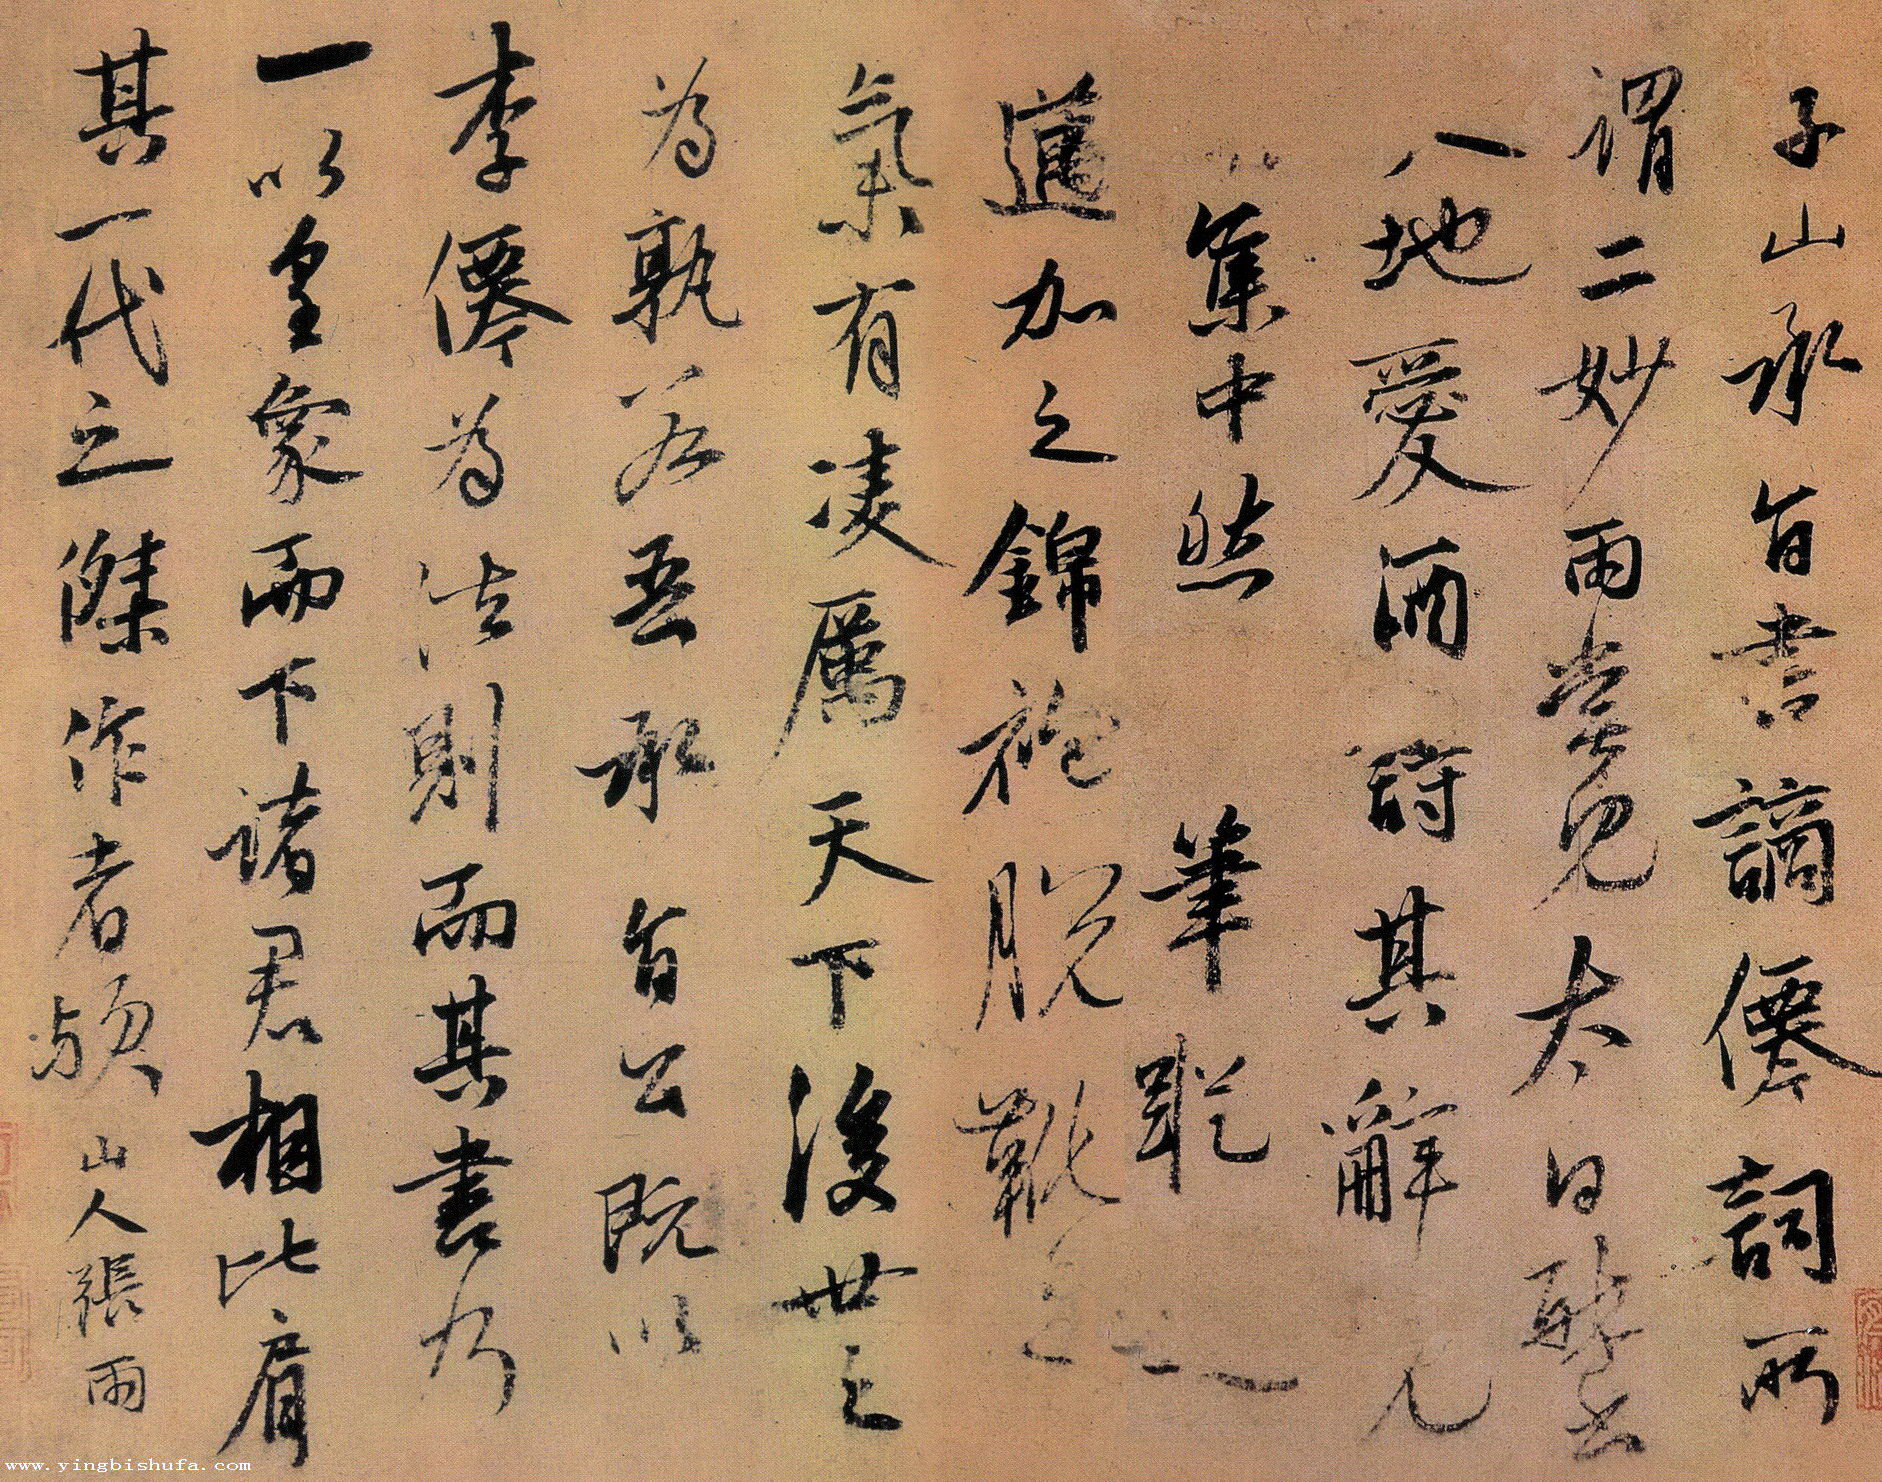 子山承旨書謫僊詞所
謂二妙雨嘗見太白醉書
八地愛酒詩其辭見
集中然筆蹤
遒加之錦袍脫靴之
氣有凌厲天下後世之
為孰若吾承旨公既以
李僊為法則而其書乃
一以皇象而下諸君相比肩
其一代之傑作者歟山人張雨
www.yingbishufa.com